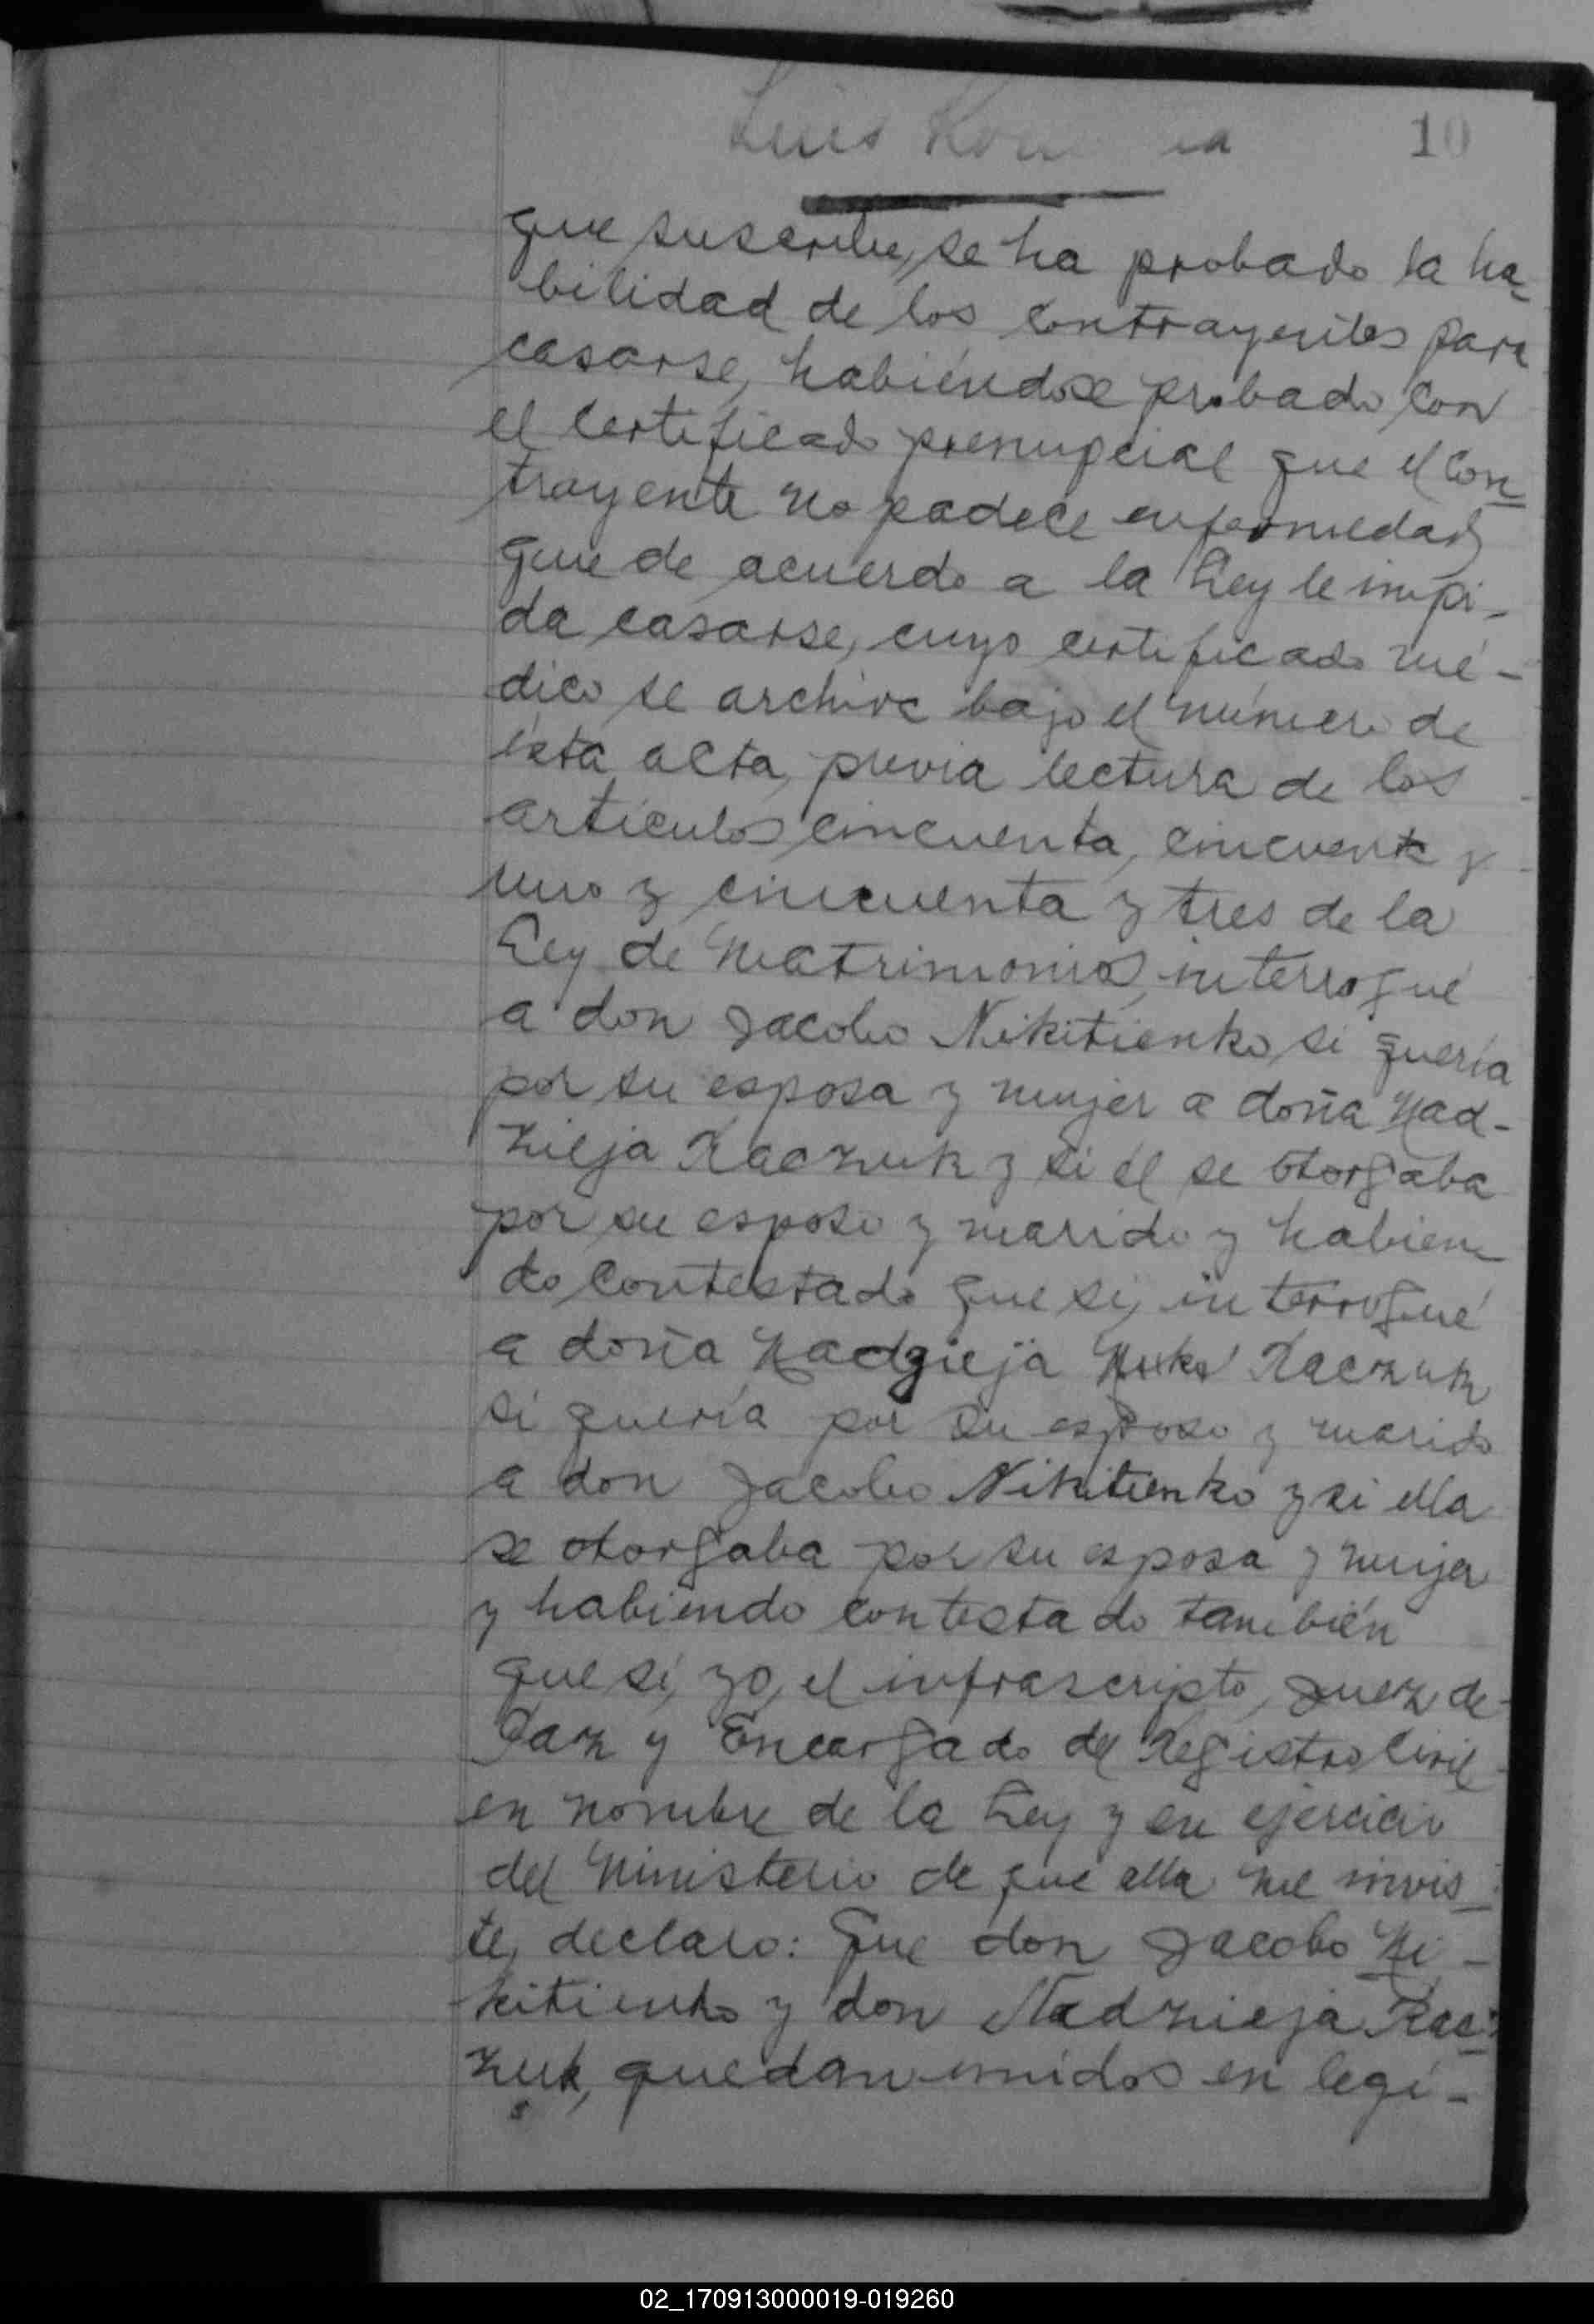 Luis
10
que suscribe, se ha probado la ha-
bilidad de los contrayentes para
casarse, habiéndose probado con
el certificado prenupcial que el con-
trayente no padece enfermedad
que de acuerdo a la Ley le impi-
da casarse, cuyo certificado mé-
dico se archiva bajo el número de
ésta acta, previa lectura de los
artículos cincuenta, cincuenta y
uno y cincuenta y tres de la
Ley de Matrimonios, interrogué
a don Jacobo Nikitienko, si quería
por su esposa y mujer a doña Nad-
zieja Kaczuk y si él se otorgaba
por su esposo y marido y habien-
do contestado que si, interrogué
a doña Nadzieja Kaczuk
si quería por su esposo y marido
a don Jacobo Nikitienko y si ella
se otorgaba por su esposa y mujer
y habiendo contestado también
que sí, yo, el infrascripto, Juez de
Paz y Encargado del Registro Civil
en nombre de la Ley y en ejercicio
del Ministerio de que ella me invis-
te, declaro: Que don Jacobo Ni-
kitienko y don Nadzieja Kac-
zuk, quedan unidos en legí-
02_170913000019-019260